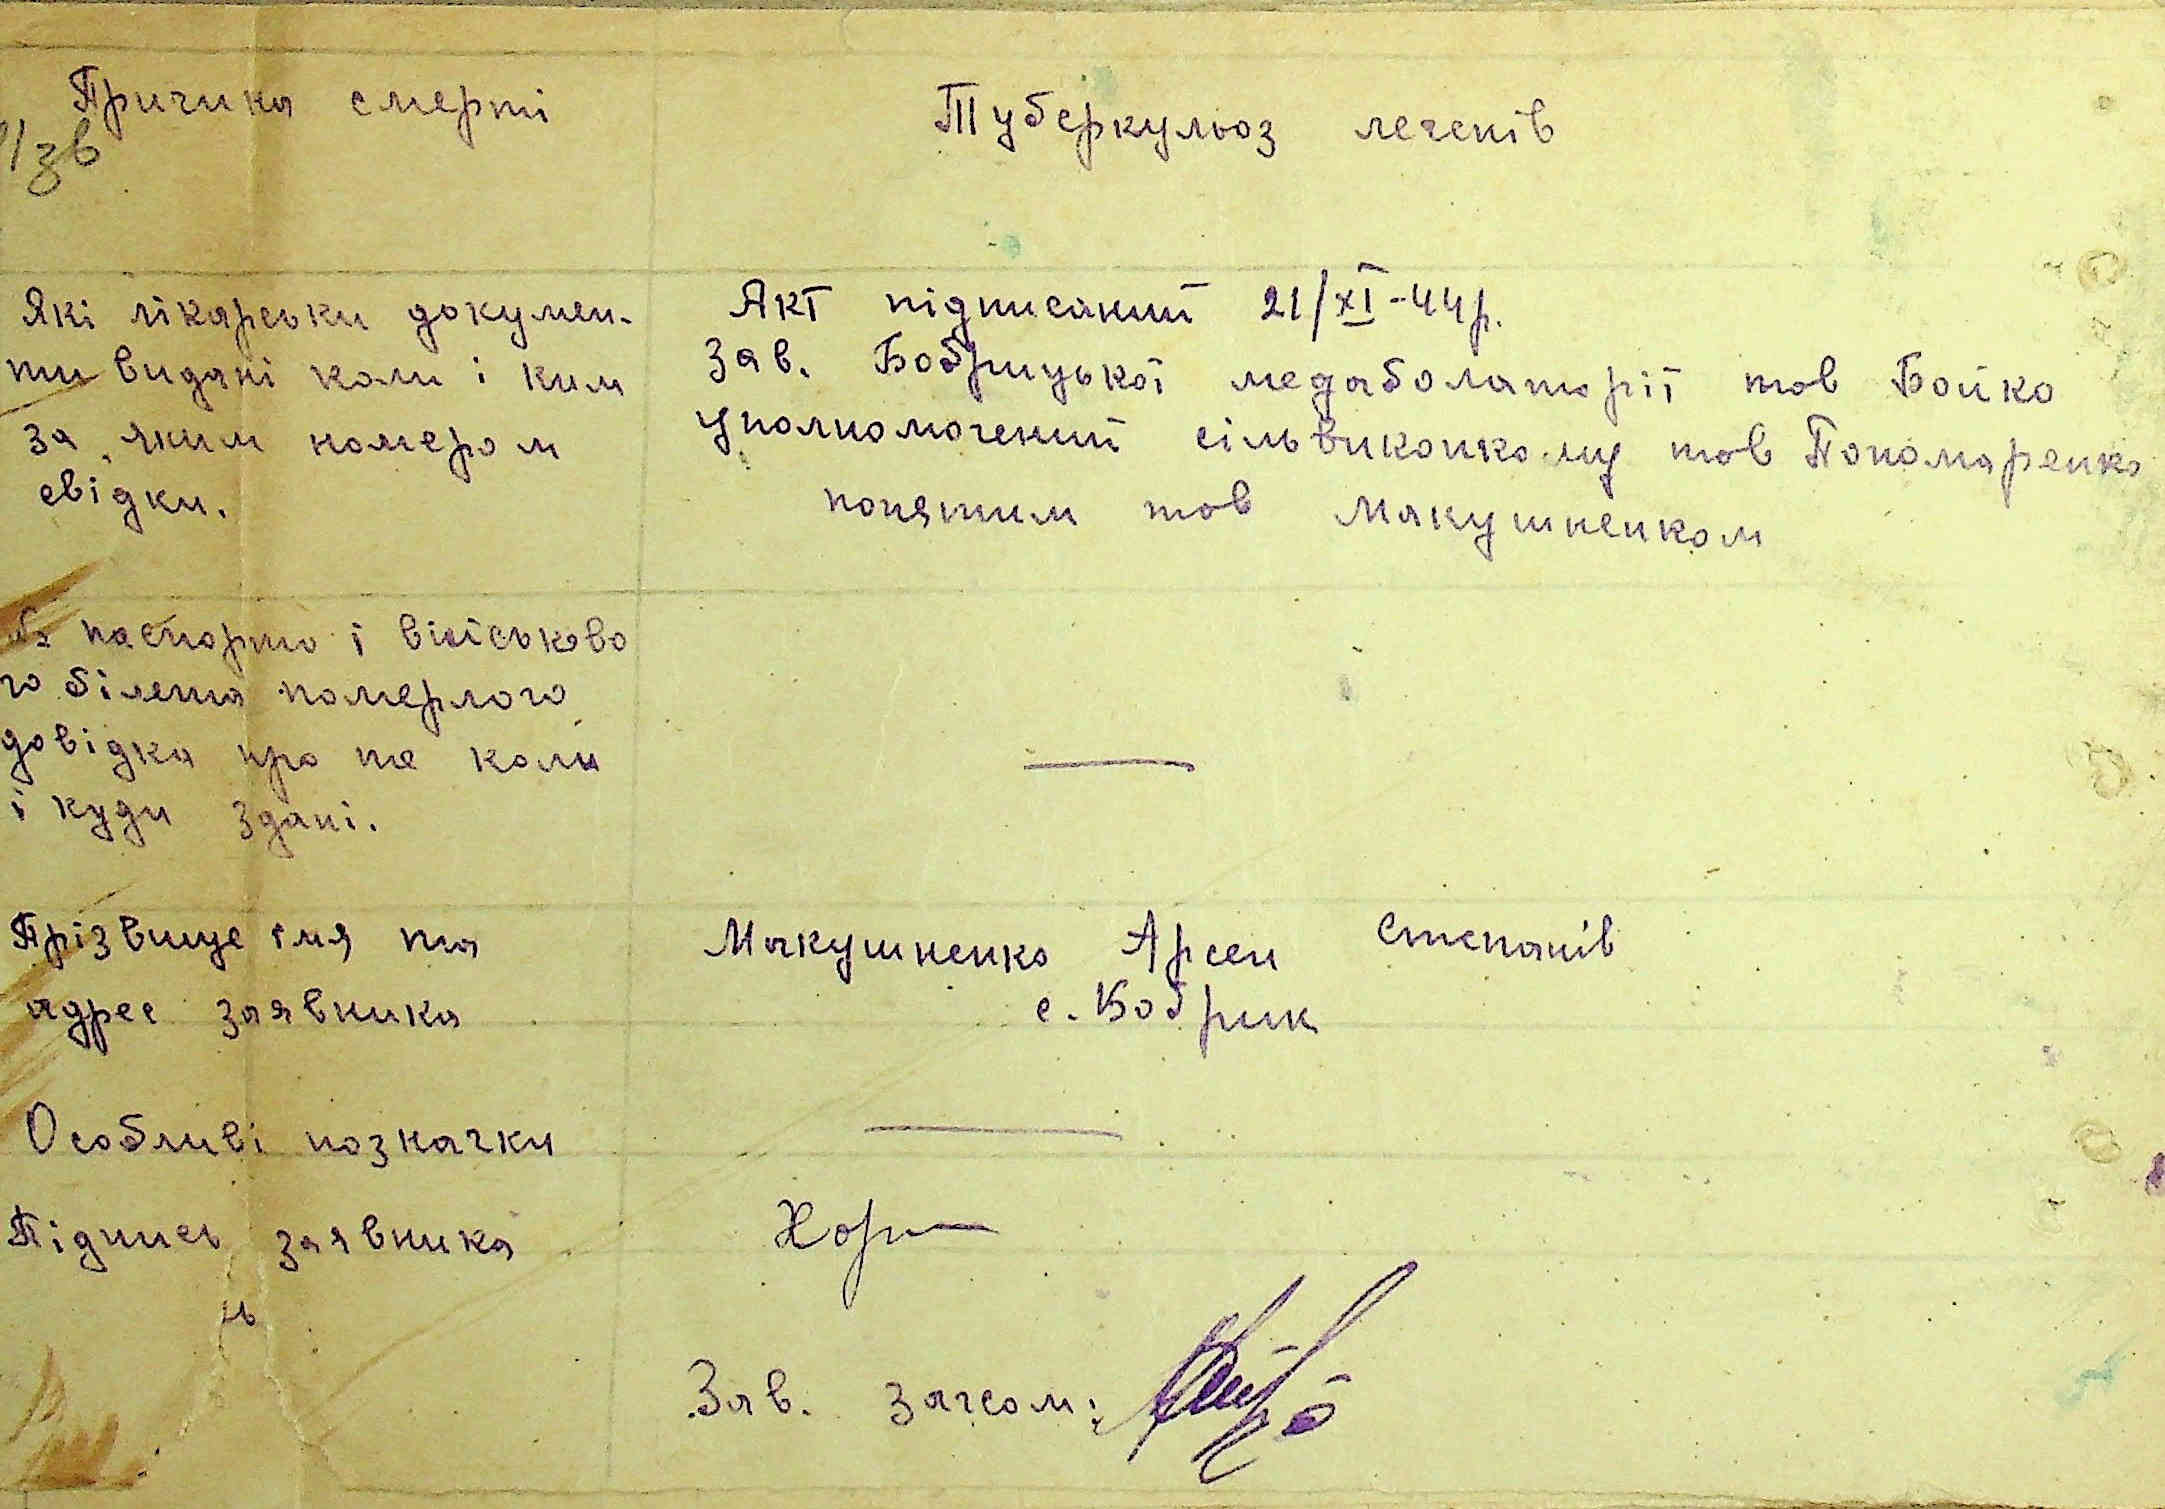 Причина смерті
Туберкульоз легенів
зв
Які лікарськи докумен-
ти видані коли і ким
за яким номером
свідки.
Акт підписаний 21/XI-44р.
Зав. Бобрицької медаболаторії тов Бойко
Уполномочений сільвиконкому тов Пономаренко
понятим тов Макушненком
паспорто і військово
го білета померлого
довідка про те коли
і куди здані.
Прізвище імя та
адрес заявника
Макушненко Арсен Степанів
с. Бобрик
Особливі позначки
Підпись заявника
Зав. загсом: